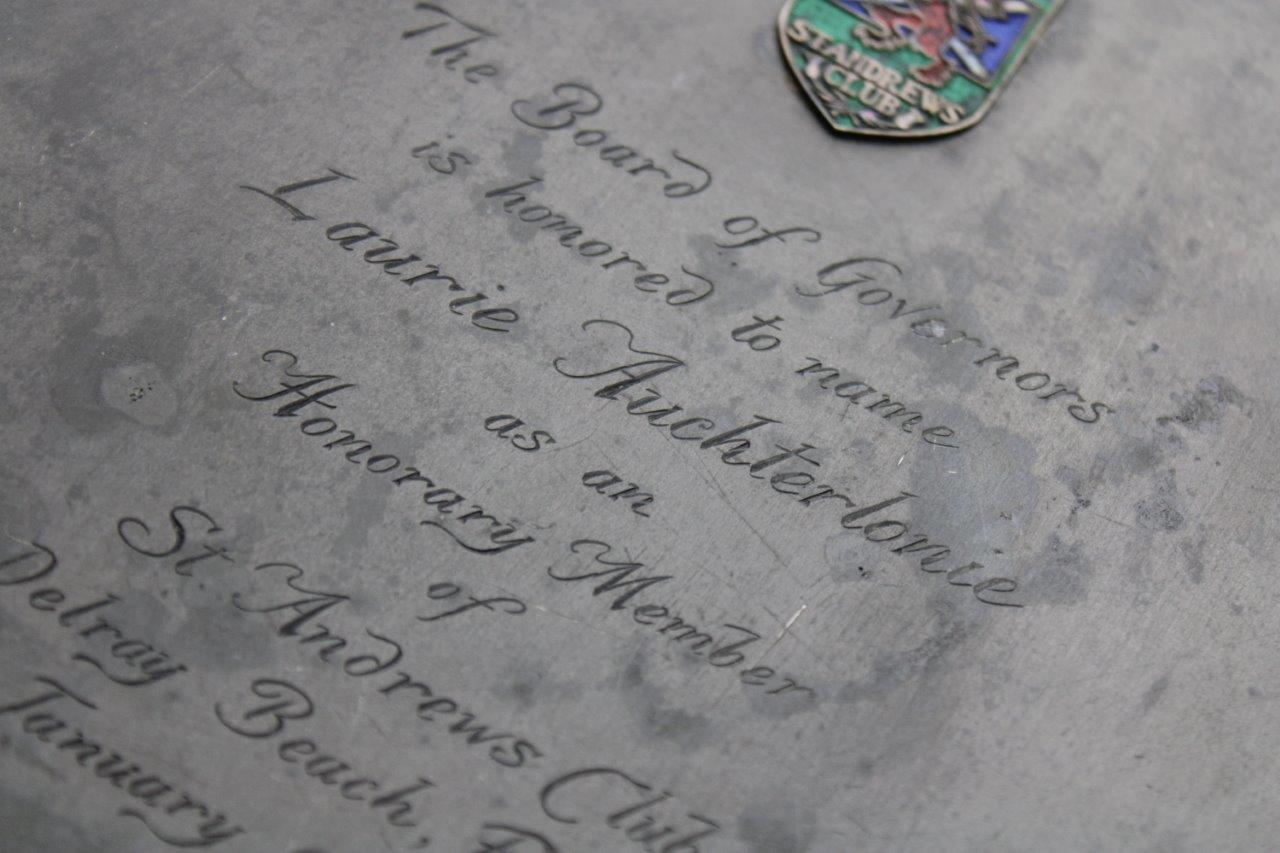 ST ANDREWS
CLUB
The Board of Governors
is honored to name
Laurie Auchterlonie
as an
Honorary Member
of
St Andrews Club
Delray Beach,
January